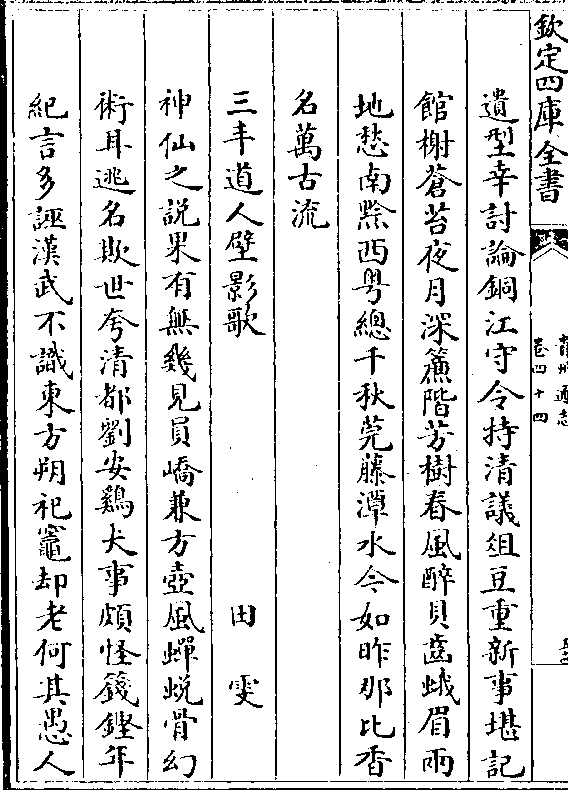 欽定四庫全書
貴州通志
卷四十四
遺型幸討論銅江守令持清議俎豆重新事堪記
館榭蒼苔夜月深簾階芳樹春風醉貝齒蛾眉兩
地愁南黔西粤總千秋莞藤潭水今如昨那比香
名萬古流
三丰道人壁影歌
田雯
神仙之説果有無幾見員嶠兼方壺風蟬蜕骨幻
術耳逃名欺世夸清都劉安鷄犬事頗怪籛鏗年
紀言多誣漢武不識東方朔祀竈却老何其愚人